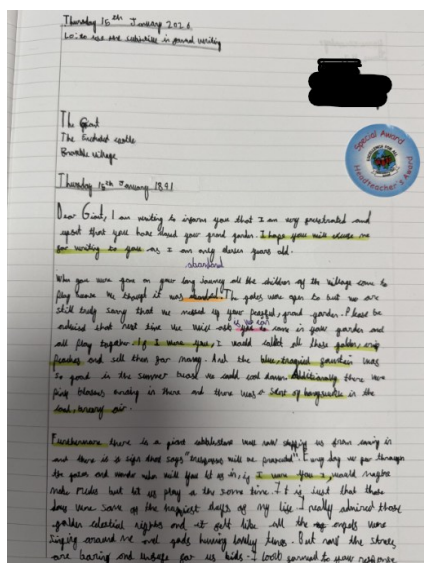 Thursday 15th January 2026
Lo: to use the subjunctive in formal writing
The Giant
The Enchanted castle
Bramble village
Special Award
Headteacher's Award
Thursday 15th January 1891
Dear Giant, I am writing to inform you that I am very and
upset that you have closed your grand garden. I hope you will excuse me
for writing to you as I am only eleven years old.
abandond
When you were gone on your long journey all the children of the village came to
play because we thought it was The gates were open to but we are
still truly sorry that we messed up your peaceful, grand garden. Please be
us we can
advised that next time we will ask you to come in your garden and
all play together. If I were you, I would collect all those golden, ripe
peaches and sell them for money. And the blue, fountain was
so good in the summer because we could cool down. Additionally there were
pink blossoms in there and there was a sense of in the
air.
Furthermore there is a giant wall stopping us from coming in
and there is a sign that says "trespassers will be prosecuted". Every day we go through
the gates and wonder when will you let us in, if I were you I, would maybe
make rules but let us play a the same time. It is just that those
days were some of the happiest days of my life. I really admired those
golden celestial nights and it felt like all the angels were
singing around me and gods humming lovely tunes. But now the streets
are boring and unsafe for us kids. I look forward to your response